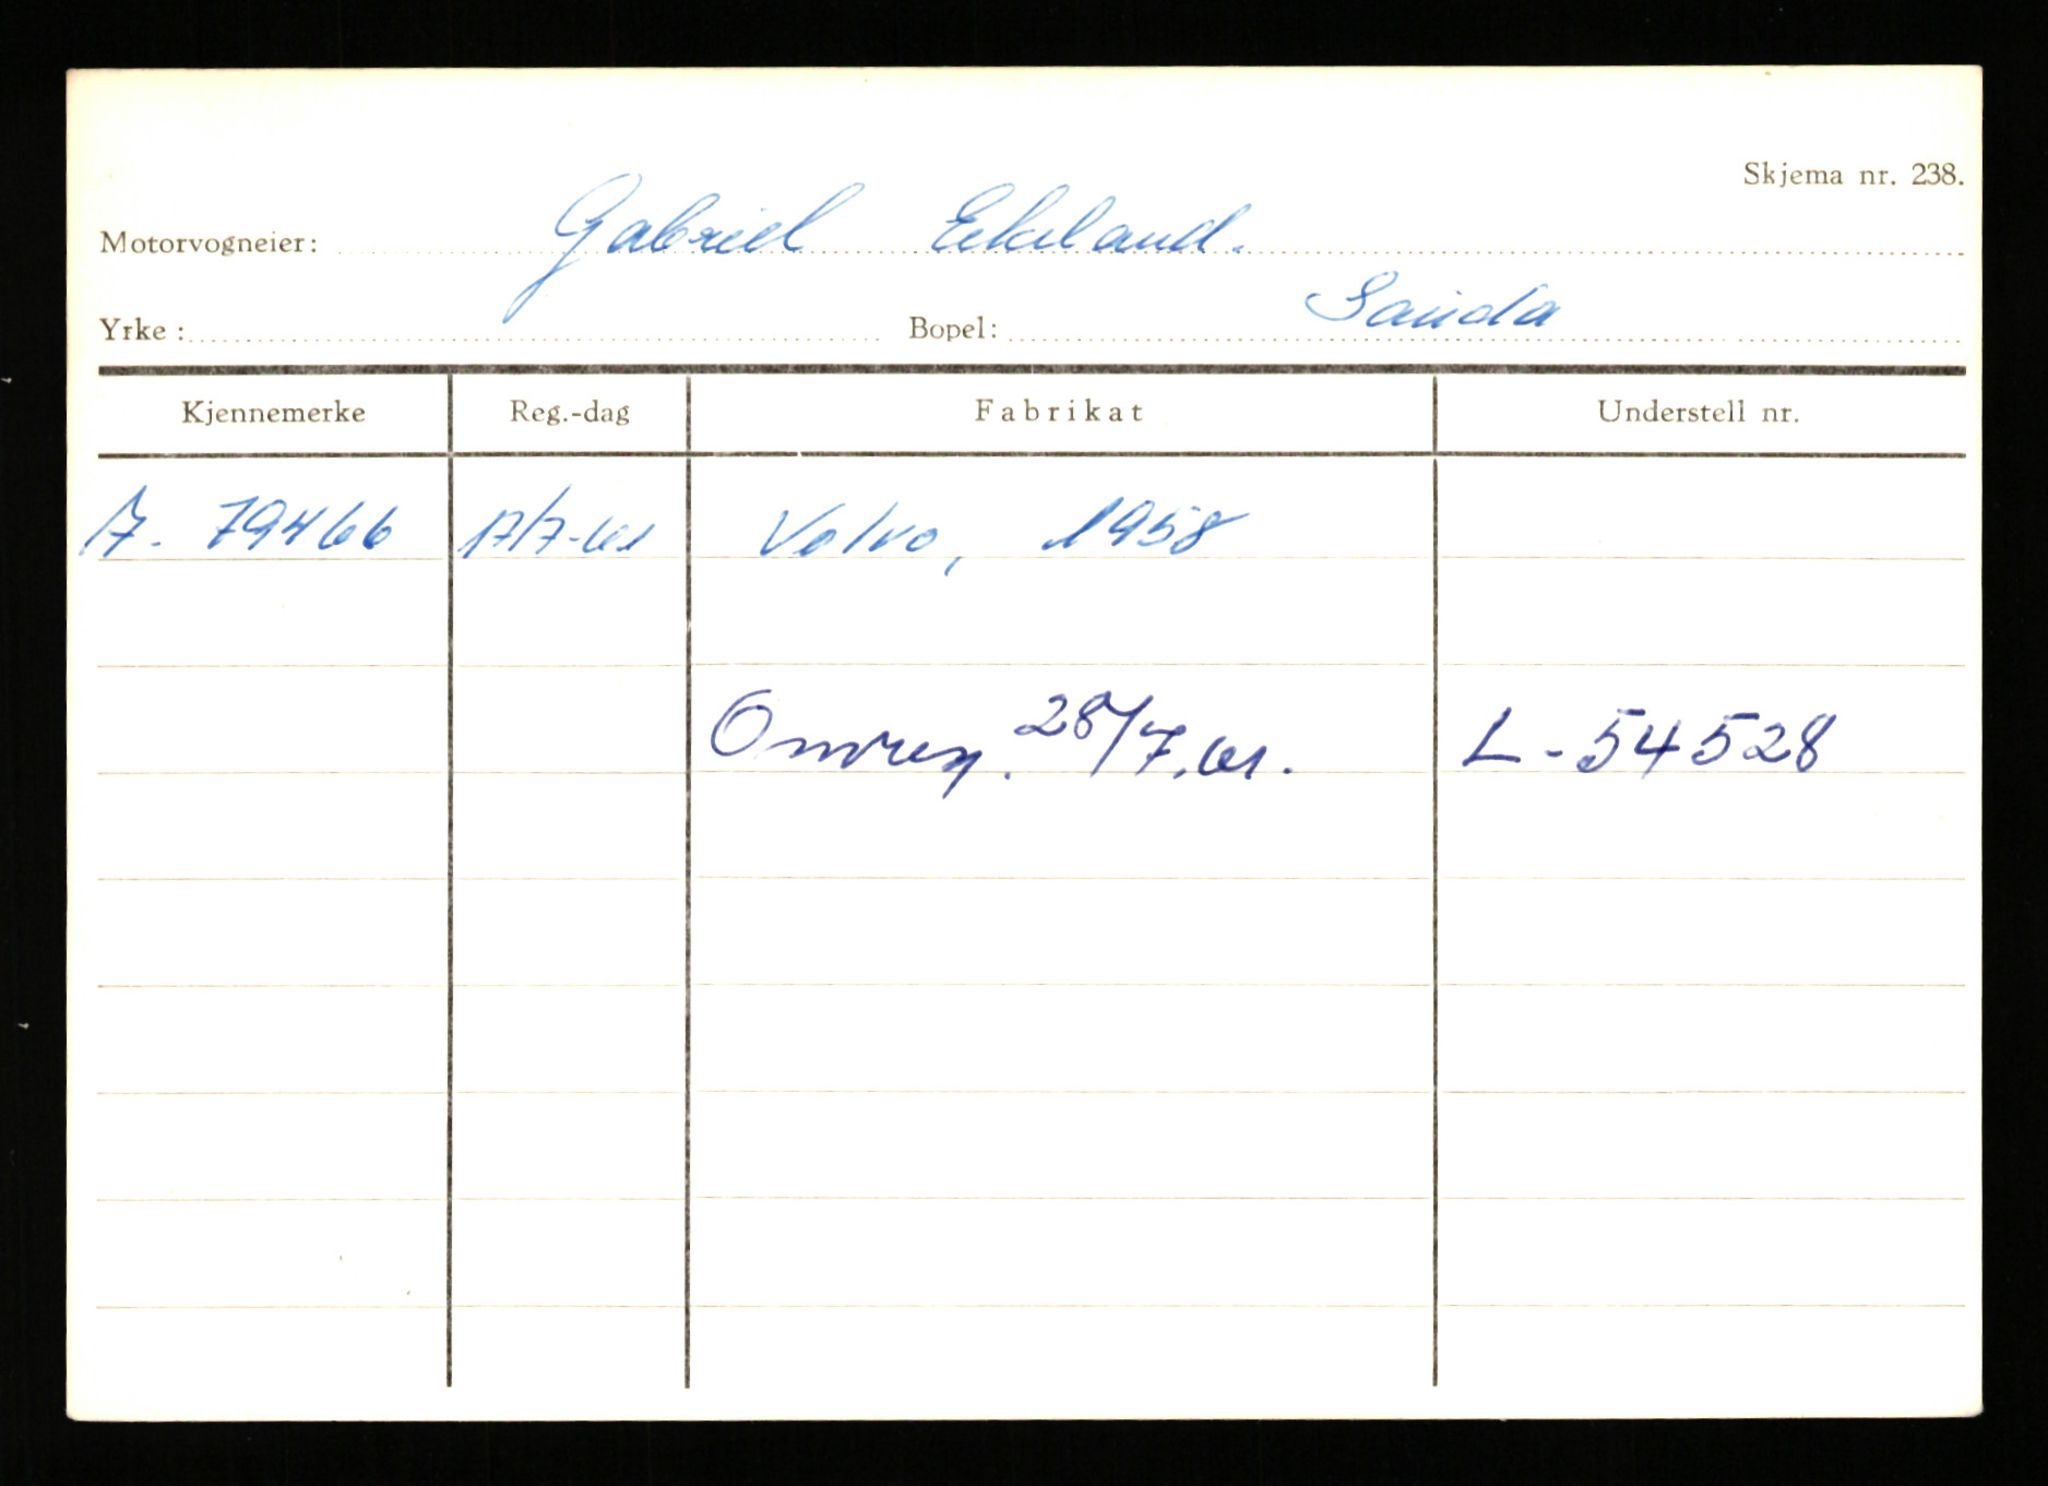 Skjema nr. 238.
Motorvogneier: Gabriel Eikeland.
Yrke: Bopel: Sauda
Kjennemerke Reg.-dag Fabrikat Understell nr.
A. 79466 17/7-61 Volvo, 1958
Omreg. 28/7.61. L-54528